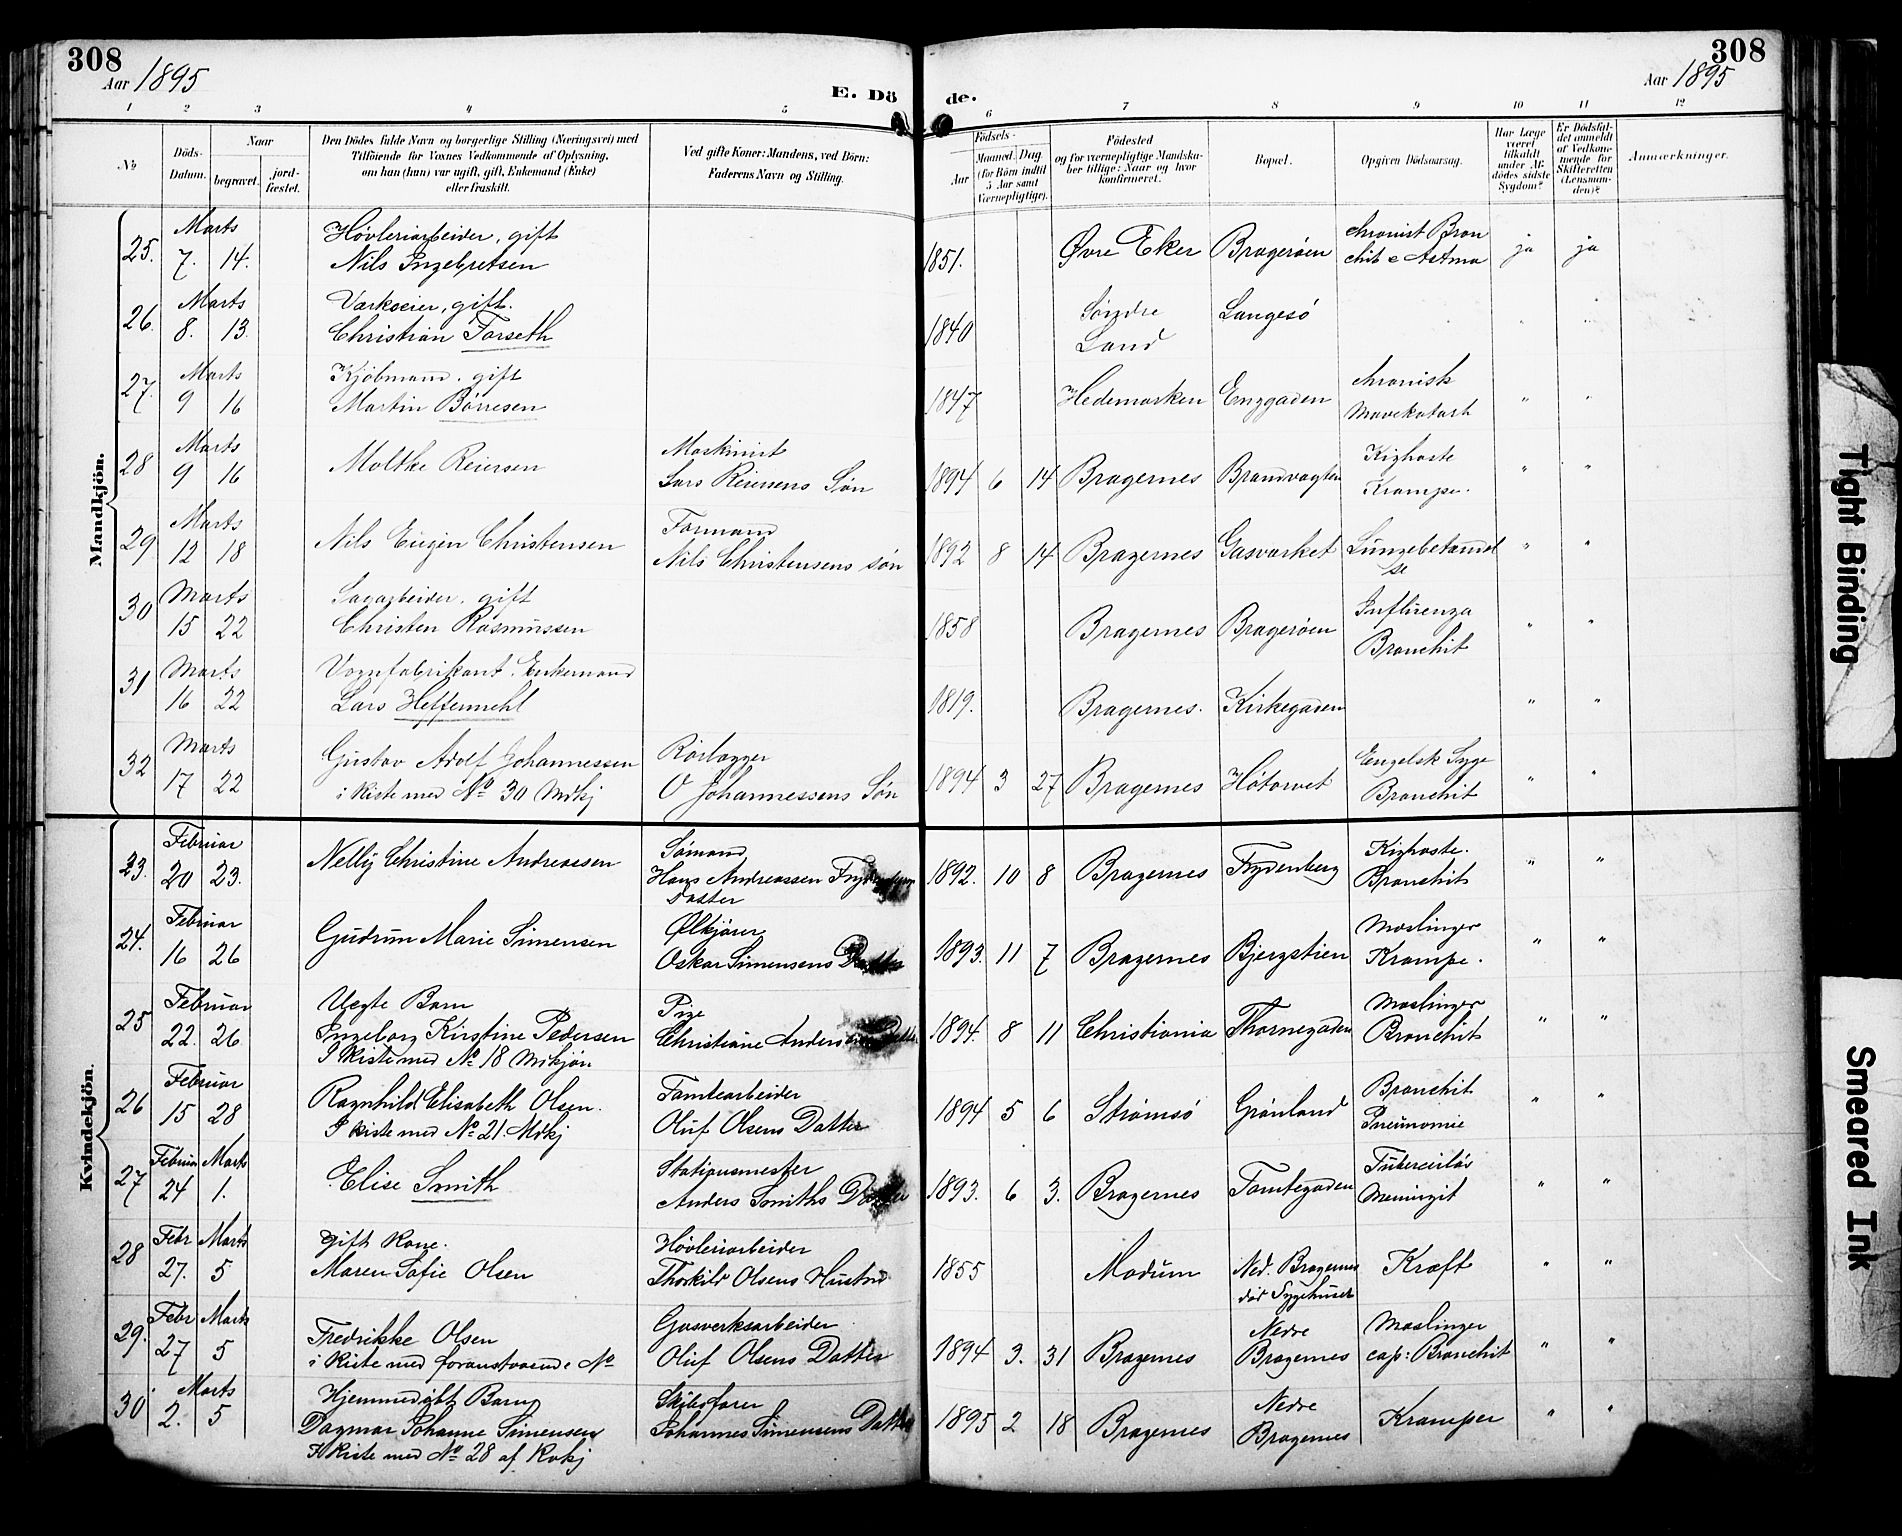 308
308
Aar 1895
Aar 1895
E. Dö
de.
1 2 3 4 5 6 7 8 9 10 11 12
No
Döds-
Datum.
Naar
begravet.
jord-
fæstet.
Den Dödes fulde Navn og borgerlige Stilling (Næringsvei) med
Tilföiende for Voxnes Vedkommende af Oplysning,
om han (hun) var ugift, gift, Enkemand (Enke)
eller fraskilt.
Ved gifte Koner: Mandens, ved Börn:
Faderens Navn og Stilling.
Födsels-
Aar
Maaned. Dag
(for Börn indtil
5 Aar samt
Værnepligtige).
Födested
og for værnepligtige Mandska-
ber tillige: Naar og hvor
konfirmeret.
Bopæl.
Opgiven Dödsaarsag.
Har Læge
været
tilkaldt
under Af-
dödes sidste
Sygdom?
Er Dödsfal-
det anmeldt
af Vedkom-
mende for
Skifteretten
(Lensman-
den)?
Anmærkninger.
Mandkjön.
25. Marts 7. 14. Høvleriarbeider, gift
Nils Ingebretsen 1851. Øvre Eker Bragerøen chronist Bron
chit e Astma ja ja
26. Marts 8. 13. Værkseier, gift.
Christian Forseth 1840 Søndre
Land Langesö
27. Marts 9 16 Kjöbmand. gift
Martin Börresen 1847 Hedemarken Enggaden chronisk
Mavekatarh " "
28 Marts 9 16 Moltke Reiersen Maskinist
Lars Reiersens Søn 1894 6 14 Bragernes Brandvagten Kighoste
Krampe. " "
29 Marts 12 18 Nils Eugen Christensen Formand
Nils Christensens søn 1892 8 14 Bragernes Gasværket Lungebetændel
se " "
30 Marts 15 22 Sagarbeider. gift
Christen Rasmussen 1858 Bragernes Bragerøen Influenza
Bronchit " "
31 Marts 16 22 Vognfabrikant. Enkemand
Lars Heltermehl 1819. Bragernes. Kirkegaden " "
32 Marts 17 22 Gustav Adolf Johannessen
i kiste med No 30 Mdkj Rörlægger
O Johannessens Søn 1894 3 27 Bragernes Høtorvet Engelsk Syge
Bronchit " "
Kvindekjön.
23. Februar 20 23. Nelly Christine Andreassen Sømand
Hans Andreassen
Datter 1892. 10 8 Bragernes Frydenberg Kighoste.
Bronchit " "
24. Februar 16 26 Gudrun Marie Simensen Ølkjører
Oskar Simensens Datter 1893. 11 7 Bragernes Bjergstien Mæslinger
Krampe. " "
25 Februar 22. 26 Uegte Barn
Ingeborg Kirstine Pedersen
I kiste med No 18 Mdkjön Pige
Christiane 1894. 8 11 Christiania Thornegaden Mæslinger
Bronchit " "
26 Februar 15 28 Ragnhild Elisabeth Olsen.
I kiste med No 21. Mdkj Tomtearbeider
Oluf Olsens Datter 1894 5 6 Strømsø Grønland Bronchit
Pneumonie " "
27 Februar Marts 24 1. Elise Smith Stationsmester
Anders Smiths Datter 1893. 6 3. Bragernes Tomtegaden Tuberculøs
Meningit " "
28 Febr Marts 27. 5 gift Kone.
Maren Sofie Olsen Høvleriarbeider
Thorkild Olsens Hustru 1855 Modum Ned. Bragernes
død Sygehuset Kræft " "
29. Febr Marts 27 5 Fredrikke Olsen
i Kiste med foranstaaende No Gasverksarbeider
Oluf Olsens Datter 1894 3. 31 Bragernes Nedre
Bragernes Mæslinger
cap: Bronchit " "
30 Marts 2. 5 Hjemmedøbt Barn
Dagmar Johanne Simensen
I Kiste med No 28 af Kvkj Skibsfører
Johannes Simensens Datter 1895 2 18 Bragernes Nedre
Bragernes Kramper " "
Tight Binding
Smeared Ink